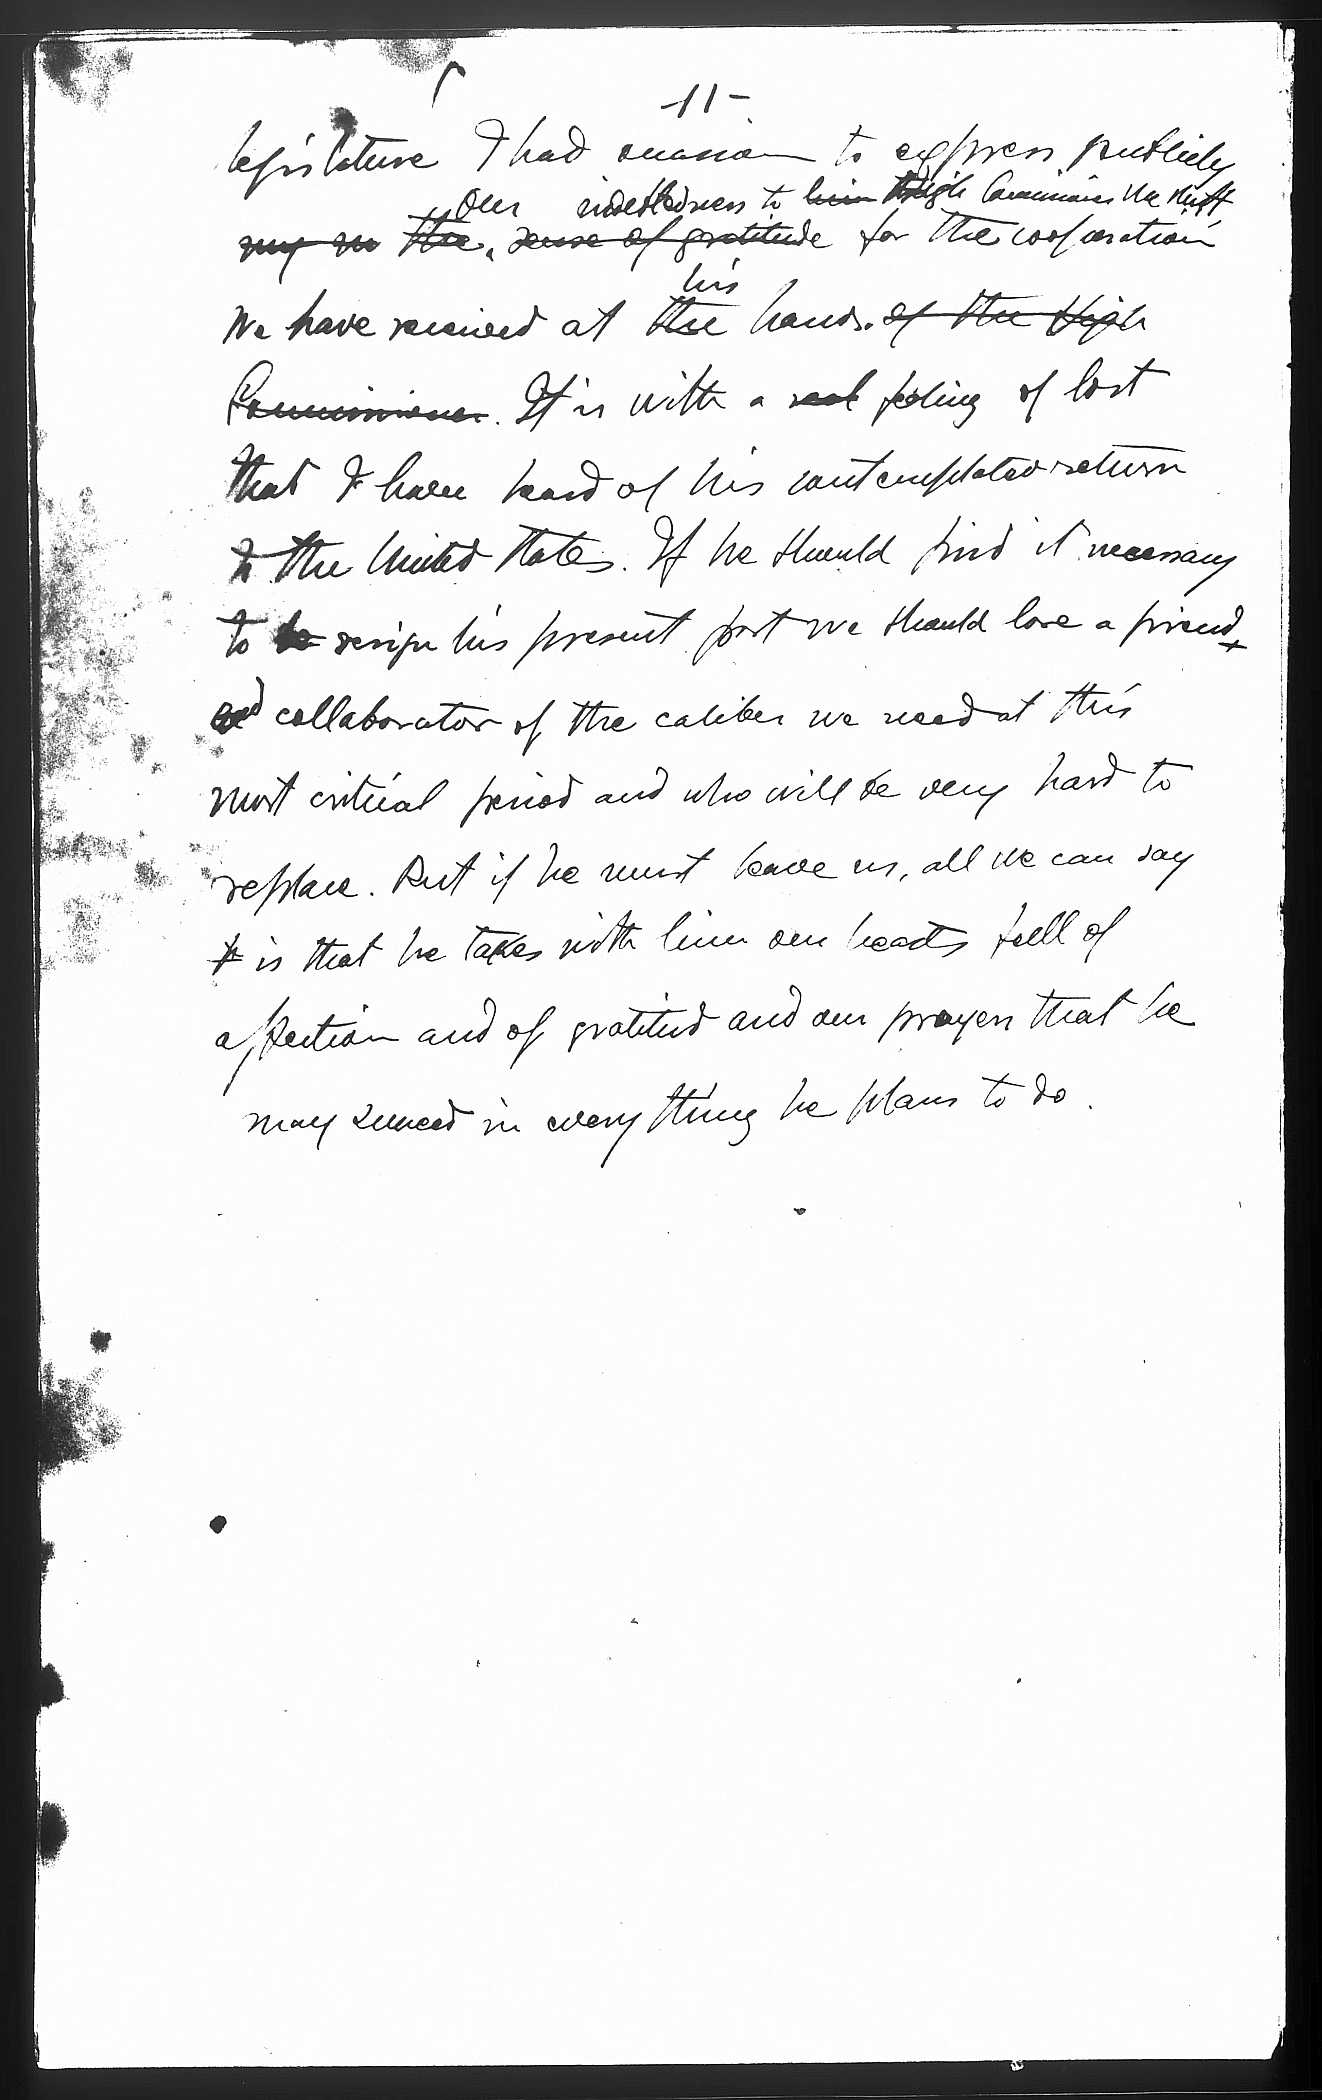 -11-
legislature I had occasion to express publicly
our indebtedness to him High Commissioner McNutt
my the sense of gratitude for the cooperation
his
we have received at the hands. of the High
Commissioner. It is with a real feeling of lost
that I have heard of his contemplated return
to the United States. If he should find it necessary
to be resign his present post we should lose a friend
and collaborator of the caliber we need at this
most critical period and who will be very hard to
replace. But if he must leave us, all we can say
is that he takes with him our hearts full of
affection and of gratitud and our prayers that he
may succeed in every thing he plans to do.